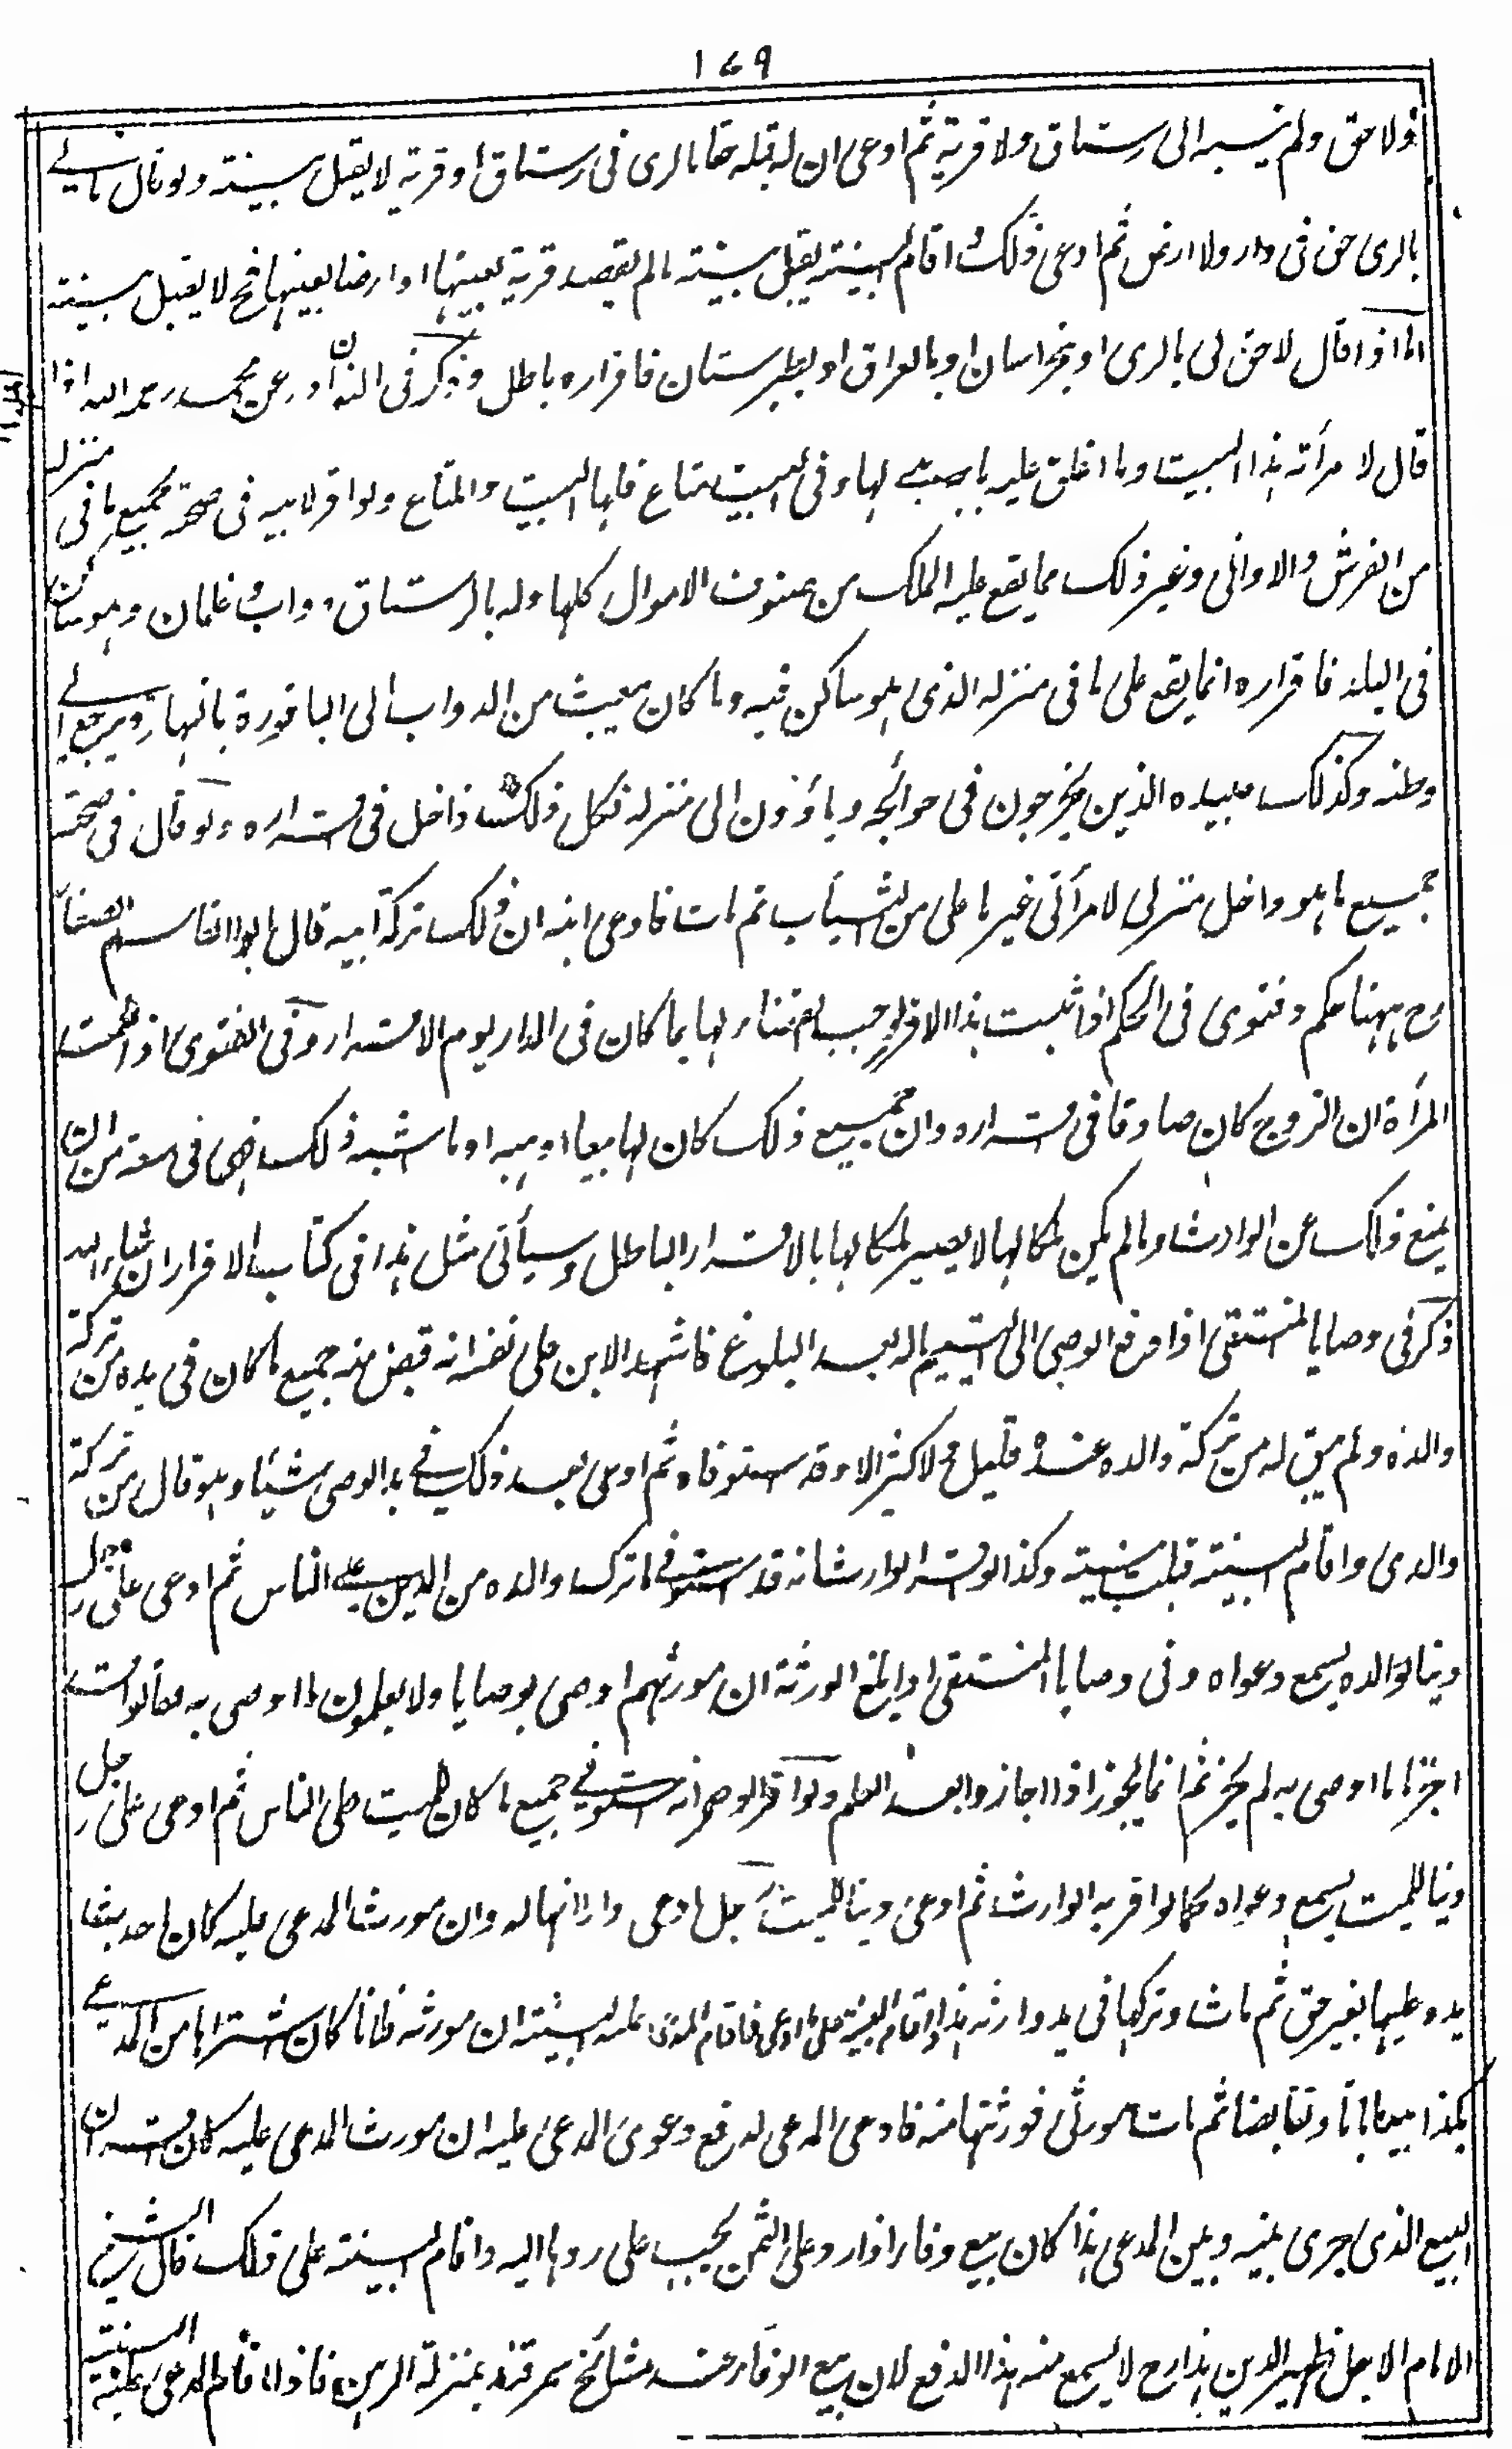 ١٦٩
ولا حق ولم ينسبه الى رستاق ولا قرية ثم ادعى ان له قبله حقا بالرى فى رستاق او قرية لا يقبل بينته ولو قال ما لى
بالرى حق فى دار ولا ارض ثم ادعى ذلك و اقام البينة يقبل بينته ما لم يقصد قرية بعينها او ارضا بعينها فح لا يقبل بينته
اما اذا قال لا حق لى بالرى او بخراسان او بالعراق او بطبرستان فاقراره باطل وذكر فى النوادر عن محمد رحمه الله اذا
قال لامرأته هذا البيت وما اغلق عليه بابه لها وفى البيت متاع فلها البيت والمتاع ولو اقر لابيه فى صحته بجميع ما فى منزله
من الفرش والاوانى وغير ذلك مما يقع عليه الملك من صنوف الاموال كلها وله بالرستاق دواب و غلمان وهو ساكن
فى البلد فاقراره انما يقع على ما فى منزله الذى هو ساكن فيه وما كان يبعث من الدواب الى الباقورة بالنهار ويرجع الى
وطنه وكذلك عبيده الذين يخرجون فى حوائجه وياؤون الى منزله فكل ذلك داخل فى اقراره ولو قال فى صحته
جميع ما هو داخل منزلى لامرأتى غير ما على من الثياب ثم مات فادعى ابنه ان ذلك تركة ابيه قال ابو القاسم الصفار
رح ههنا حكم وفتوى فى الحكم اذا ثبت هذا الاقرار وجب القضاء لها بما كان فى الدار يوم الاقرار وفى الفتوى اذا علمت
المرأة ان الزوج كان صادقا فى اقراره وان جميع ذلك كان لها بيعا او هبة او ما اشبه ذلك فهى فى سعة من ان
يمنع ذلك عن الوارث وما لم يكن ملكا لها لا يصير ملكا لها بالاقرار الباطل وسيأتى مثل هذا فى كتاب الاقرار ان شاء الله
ذكر فى وصايا المنتقى اذا دفع الوصى الى اليتيم ماله بعد البلوغ فاشهد الابن على نفسه انه قبض منه جميع ما كان فى يده من تركة
والده ولم يبق له من تركة والده عنده قليل و لا كثير الا وقد استوفاه ثم ادعى بعد ذلك فى يد الوصى شيئا وهو قال من تركة
والدى واقام البينة قبلت بينته وكذا لو اقر الوارث انه قد استوفى ما ترك والده من الدين على الناس ثم ادعى على رجل
دينا لوالده يسمع دعواه وفى وصايا المنتقى اذا بلغ الورثة ان مورثهم اوصى بوصايا ولا يعلمون ما اوصى به فقالوا قد
اجزنا ما اوصى به لم يجز ثم انما يجوز اذا اجازوا بعد العلم ولو اقر الوصى انه استوفى جميع ما كان للميت على الناس ثم ادعى على رجل
دينا للميت يسمع دعواه كما لو اقر به الوارث ثم ادعى دينا للميت رجل ادعى دارا انها له وان مورث المدعى عليه كان احدث
يده عليها بغير حق ثم مات وتركها فى يد وارثه هذا و اقام البينة على ما ادعى فاقام المدعى عليه البينة ان مورثه فلانا كان اشتراها من المدعى
بكذا بيعا باتا وتقابضا ثم مات مورثى فورثتها منه فادعى المدعى لدفع دعوى المدعى عليه ان مورث المدعى عليه كان اقر ان
البيع الذى جرى بينه وبين المدعى هذا كان بيع وفا اذا رد على الثمن يجب على ردها اليه واقام البينة على ذلك قال الشيخ
الامام الاجل ظهير الدين هذا رح لا يسمع منه هذا الدفع لان بيع الوفاء عند مشائخ سمرقند بمنزلة الرهن فاذا اقام المدعى عليه البينة